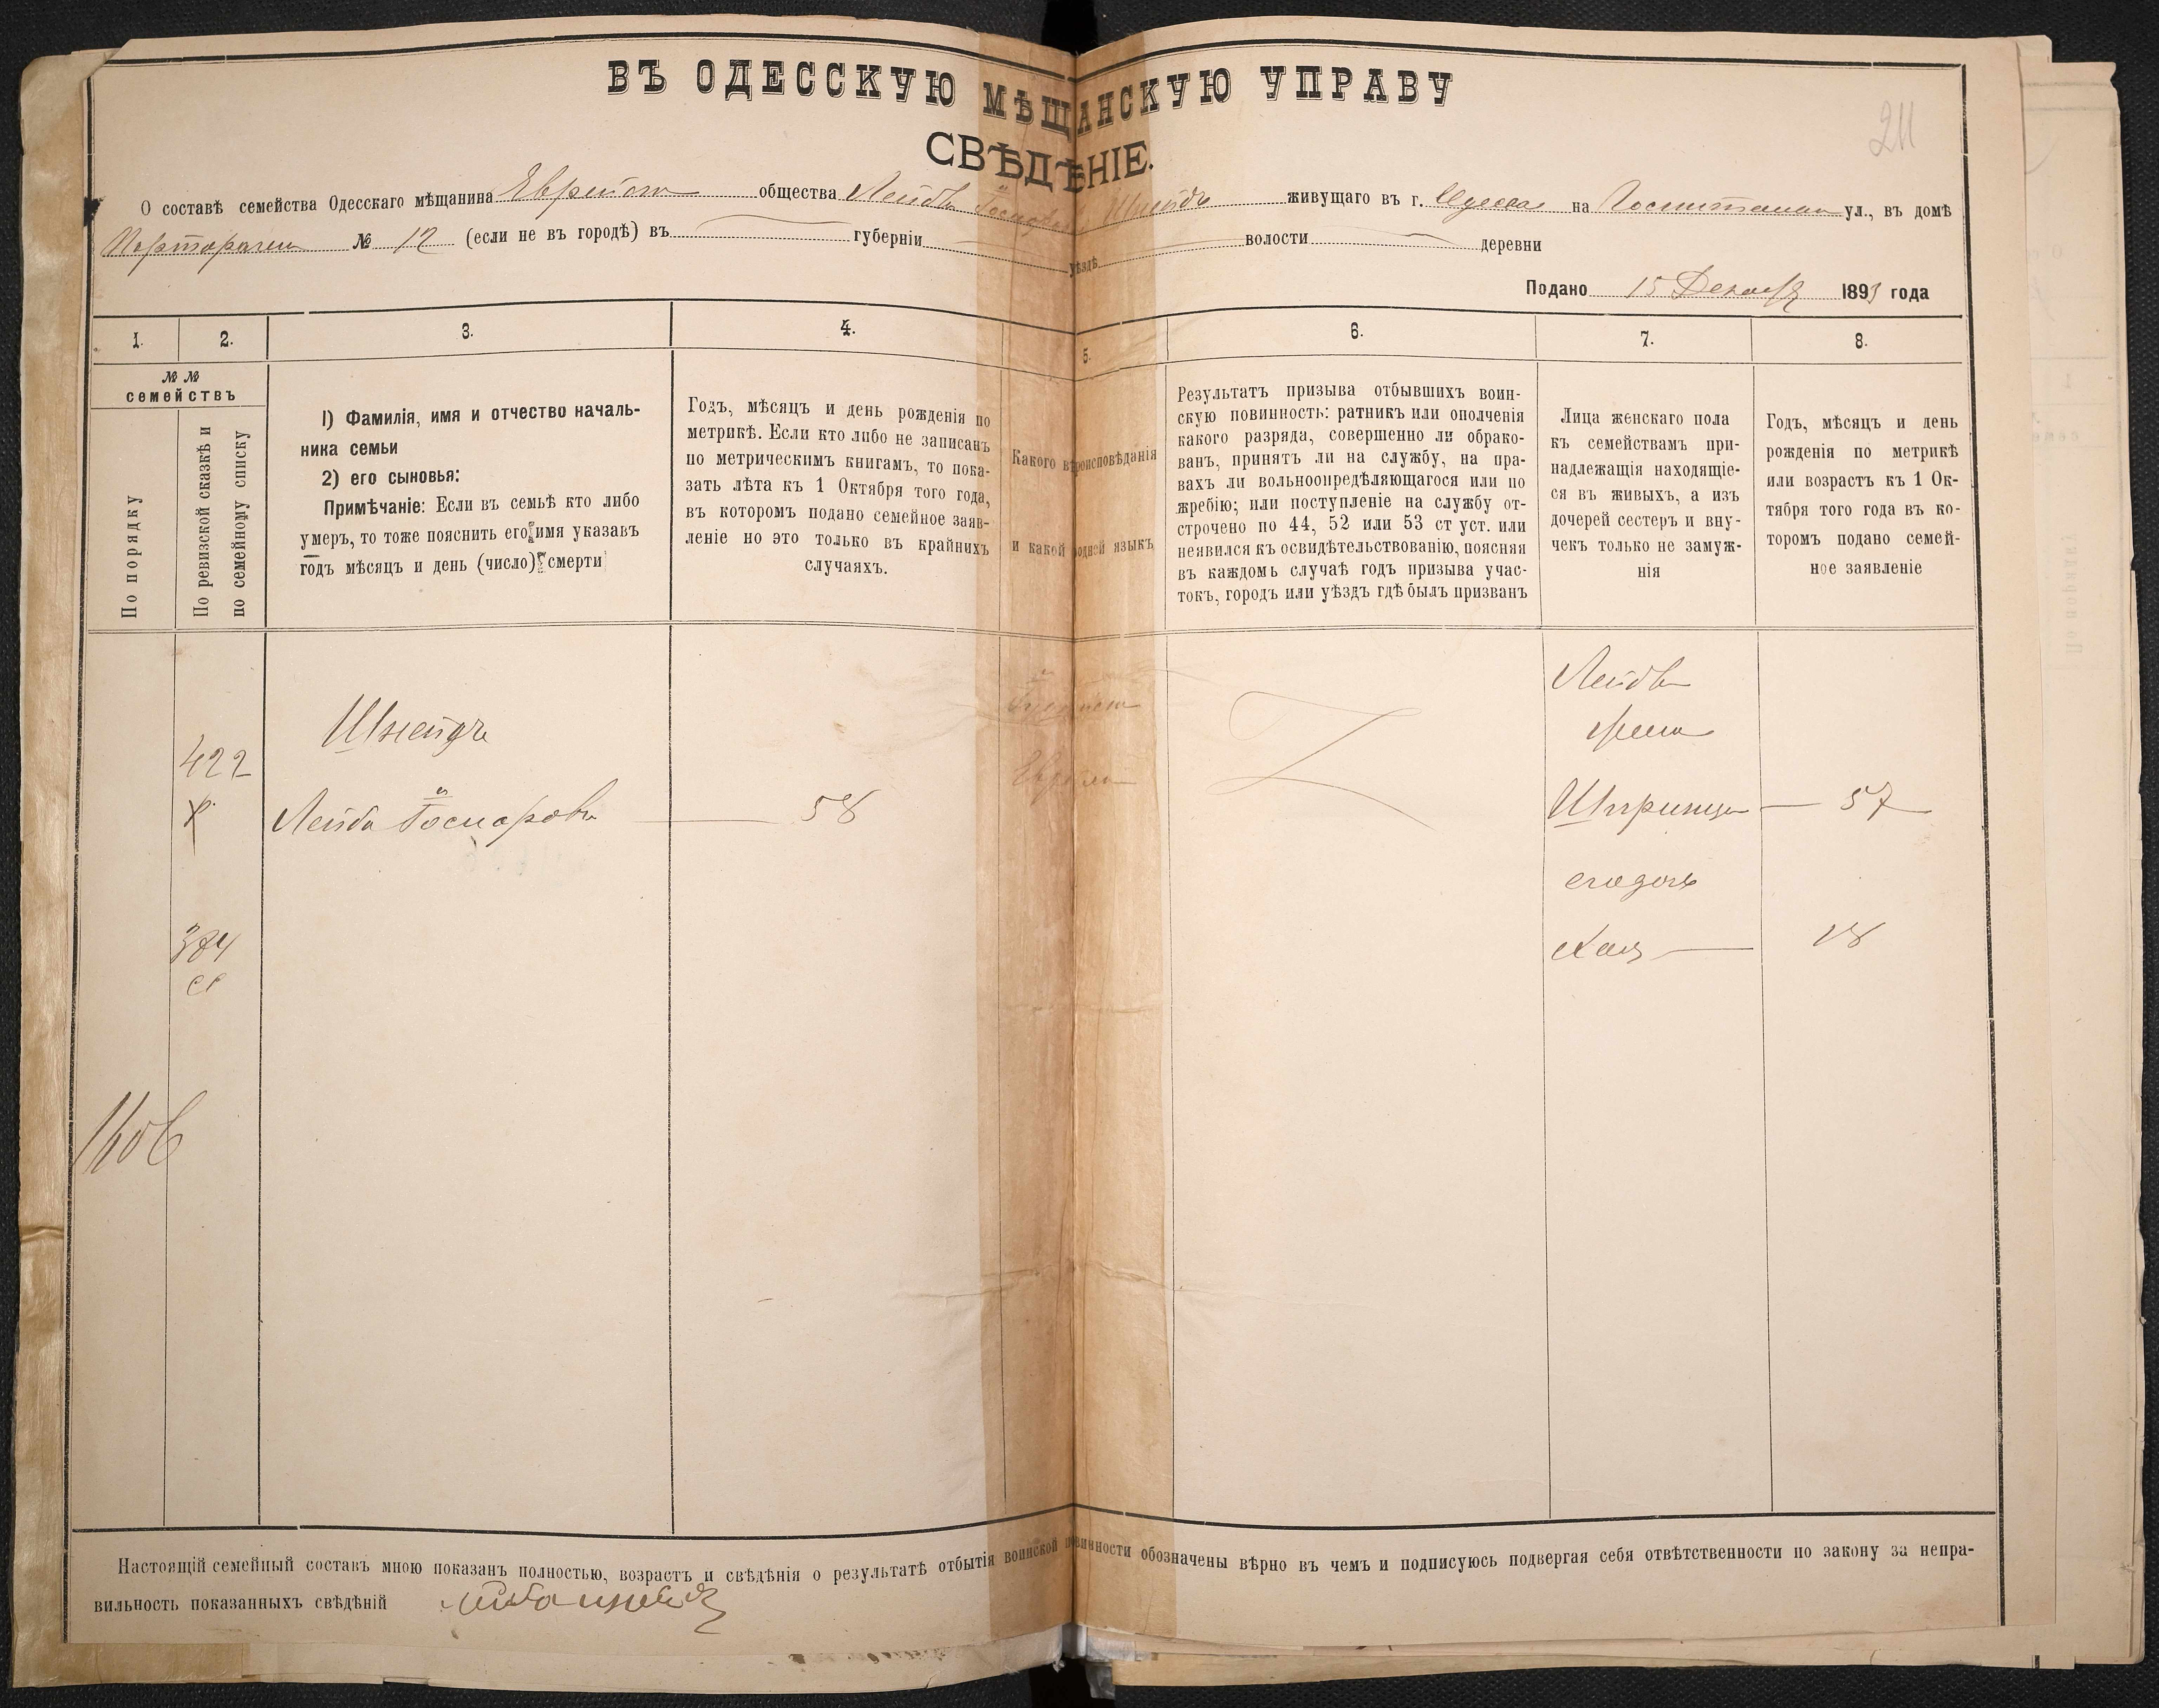 ВЪ ОДЕССКУЮ МѢЩАНСКУЮ УПРАВУ
СВѢДѢНІЕ.
211
О составѣ семейства Одесскаго мѣщанина Еврейск общества Лейбы Іосиоров Шнейдъ живущаго въ г. Одесса на Госпитальн ул., въ домѣ
№ 12 (если не въ городѣ) въ губерніи уѣздѣ волости деревни
Подано 15 Декабр 1893 года
1. 2. 3. 4. 5. 6. 7. 8.
№ № семействъ
По порядку
По ревизской сказкѣ и по семейному списку
1) Фамилія, имя и отчество началь-
ника семьи
2) его сыновья:
Примѣчаніе: Если въ семьѣ кто либо
умеръ, то тоже пояснить его имя указавъ
годъ мѣсяцъ и день (число) смерти
Годъ, мѣсяцъ и день рожденія по
метрикѣ. Если кто либо не записанъ
по метрическимъ книгамъ, то пока-
зать лѣта къ 1 Октября того года,
въ которомъ подано семейное заяв-
леніе но это только въ крайнихъ
случаяхъ.
Какого вѣроисповѣданія
и какой родной языкъ
Результатъ призыва отбывшихъ воин-
скую повинность: ратникъ или ополченія
какого разряда, совершенно ли обрако-
ванъ, принятъ ли на службу, на пра-
вахъ ли вольноопредѣляющагося или по
жребію; или поступленіе на службу от-
строчено по 44, 52 или 53 ст уст. или
неявился къ освидѣтельствованію, поясняя
въ каждомъ случаѣ годъ призыва учас-
токъ, городъ или уѣздъ гдѣ былъ призванъ
Лица женскаго пола
къ семействамъ при-
надлежащія находящіе-
ся въ живыхъ, а изъ
дочерей сестеръ и вну-
чекъ только не замуж-
нія
Годъ, мѣсяцъ и день
рожденія по метрикѣ
или возрастъ къ 1 Ок-
тября того года въ ко-
торомъ подано семей-
ное заявленіе
422
р.
Шнейдъ
Лейба Іосиоровъ 58
Лейбы
жена
Шпринца 57
его дочь
Хая 18
384
сс
1606
Настоящій семейный составъ мною показанъ полностью, возрастъ и свѣдѣнія о результатѣ отбытія воинской повинности обозначены вѣрно въ чемъ и подписуюсь подвергая себя отвѣтственности по закону за непра-
вильность показанныхъ свѣдѣній